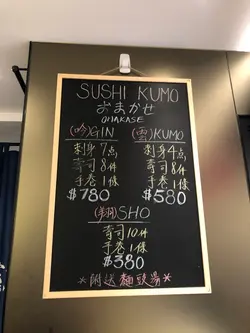 SUSHI KUMO
おまかせ
OMAKASE
(吟)GIN
刺身7点
寿司8件
手巻1條
$780
(雲)KUMO
刺身4点
寿司8件
手巻1條
$580
(翔)SHO
寿司10件
手巻1條
$380
*附送麵豉湯*